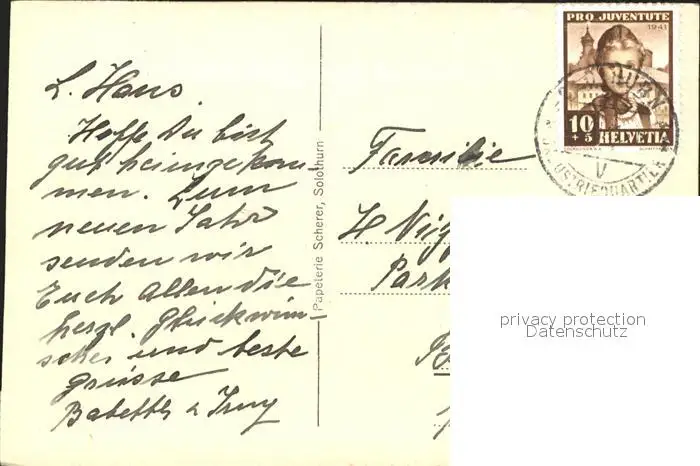 L. Hans.
Hoffe Du bist
gut heimgekom-
men. Zum
neuen Jahr
senden wir
Euch allen die
herzl. Glückwün-
sche und beste
Grüsse
Babette & Irmy
Papeterie Scherer, Solothurn
PRO JUVENTUTE
1941
10
+5
HELVETIA
SOLOTHURN
V
INDUSTRIEQUARTIER
Familie
H
Park
privacy protection
Datenschutz